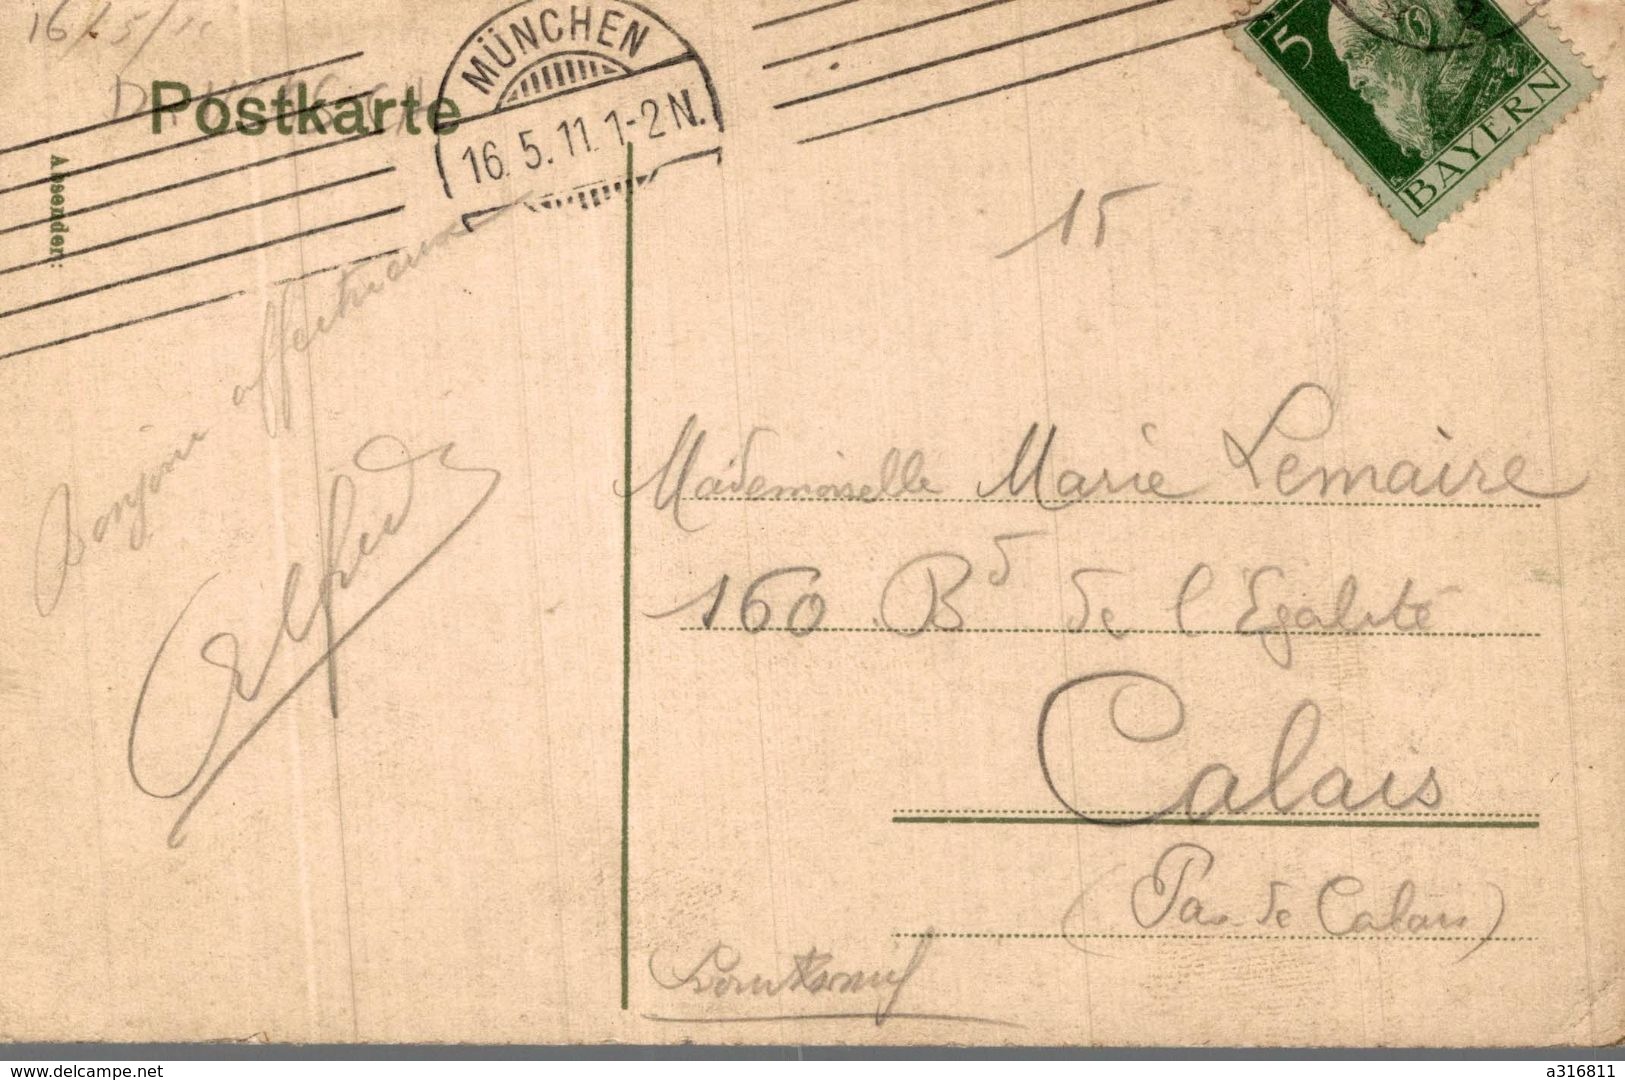 16/5/11
Postkarte
Absender:
MÜNCHEN
16. 5. 11. 1-2 N.
5
BAYERN
15
Bonjour affectueux
Alfred
Mademoiselle Marie Lemaire
160 Bd de l'Egalité
Calais
(Pas de Calais)
delcampe.net
a316811